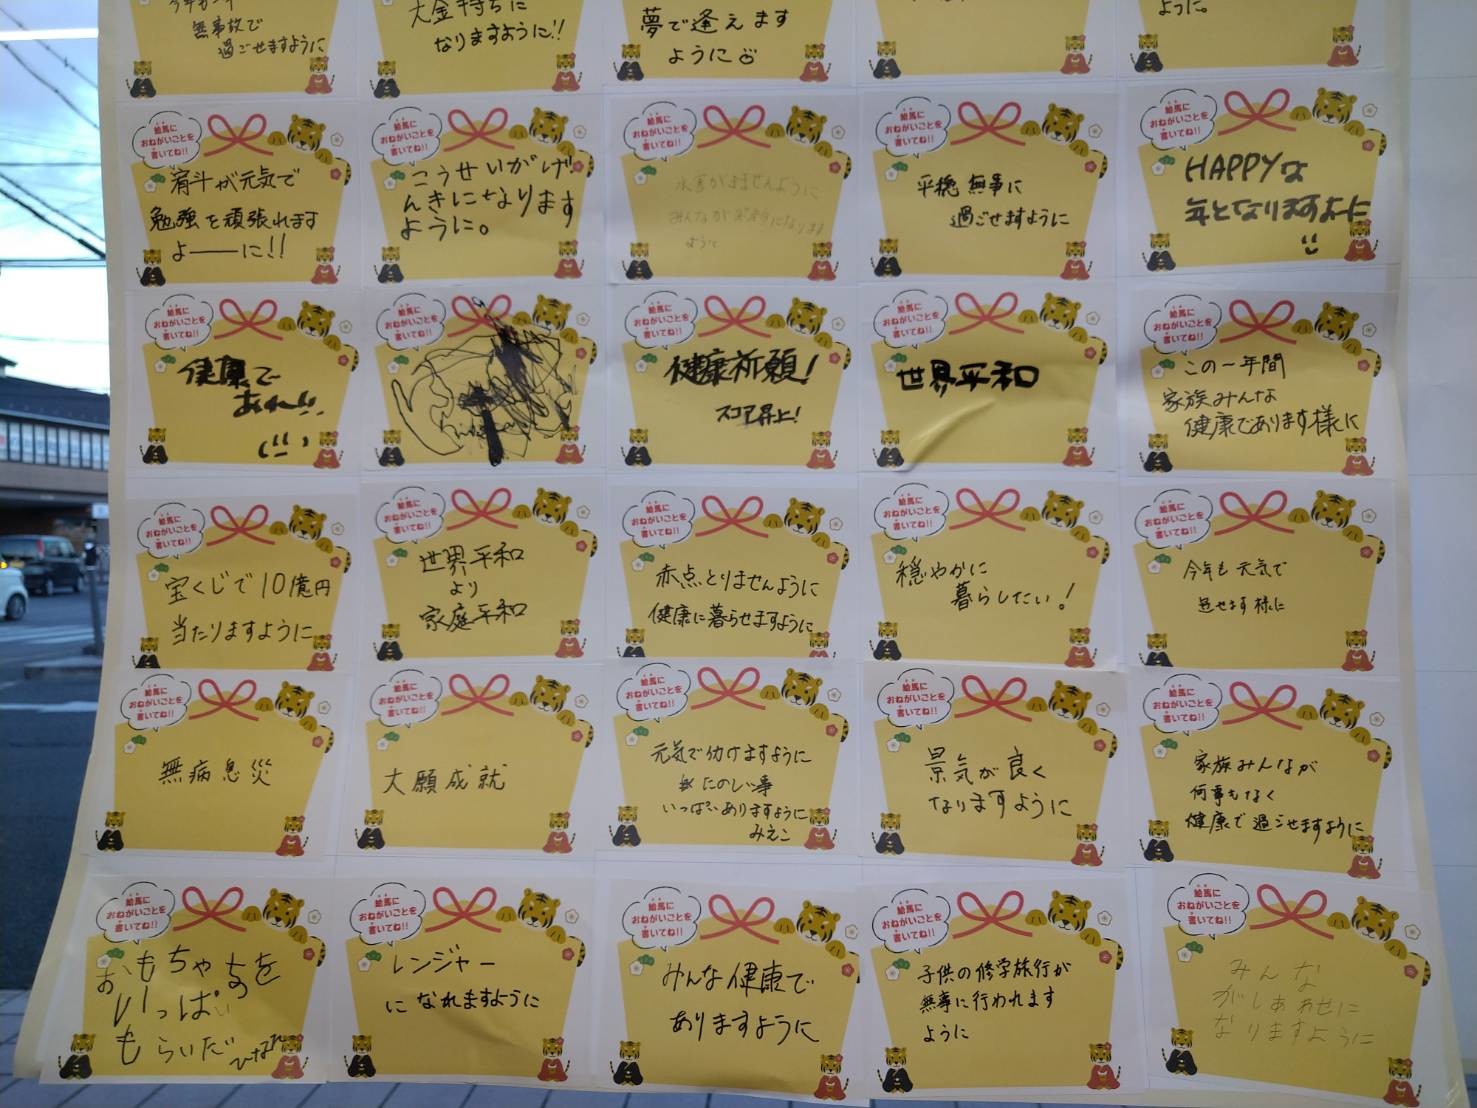 無事故で
過ごせますように
大金持ちに
なりますように!!
夢で逢えます
ように
ように。
絵馬に
おねがいごとを
書いてね!!
宥斗が元気で
勉強を頑張れます
よーーに!!
絵馬に
おねがいごとを
書いてね!!
こうせいがげ
んきになります
ように。
絵馬に
おねがいごとを
書いてね!!
水害がきませんように
みんなが
ように
絵馬に
おねがいごとを
書いてね!!
平穏無事に
過ごせますように
絵馬に
おねがいごとを
書いてね!!
HAPPYな
年となりますよーに
絵馬に
おねがいごとを
書いてね!!
健康で
あれ〜!!
絵馬に
おねがいごとを
書いてね!!
絵馬に
おねがいごとを
書いてね!!
健康祈願!
スコア昇上!
絵馬に
おねがいごとを
書いてね!!
世界平和
絵馬に
おねがいごとを
書いてね!!
この一年間
家族みんな
健康であります様に
絵馬に
おねがいごとを
書いてね!!
宝くじで10億円
当たりますように
絵馬に
おねがいごとを
書いてね!!
世界平和
より
家庭平和
絵馬に
おねがいごとを
書いてね!!
赤点とりませんように
健康に暮らせますように
絵馬に
おねがいごとを
書いてね!!
穏やかに
暮らしたい!
絵馬に
おねがいごとを
書いてね!!
今年も元気で
過せます様に
絵馬に
おねがいごとを
書いてね!!
無病息災
絵馬に
おねがいごとを
書いてね!!
大願成就
絵馬に
おねがいごとを
書いてね!!
元気で働けますように
たのしい事
いっぱいありますように
みえこ
絵馬に
おねがいごとを
書いてね!!
景気が良く
なりますように
絵馬に
おねがいごとを
書いてね!!
家族みんなが
何事もなく
健康で過ごせますように
絵馬に
おねがいごとを
書いてね!!
おもちゃを
いっぱい
もらいだい
絵馬に
おねがいごとを
書いてね!!
レンジャー
になれますように
絵馬に
おねがいごとを
書いてね!!
みんな健康で
ありますように
絵馬に
おねがいごとを
書いてね!!
子供の修学旅行が
無事に行われます
ように
絵馬に
おねがいごとを
書いてね!!
みんな
がしあわせに
なりますように